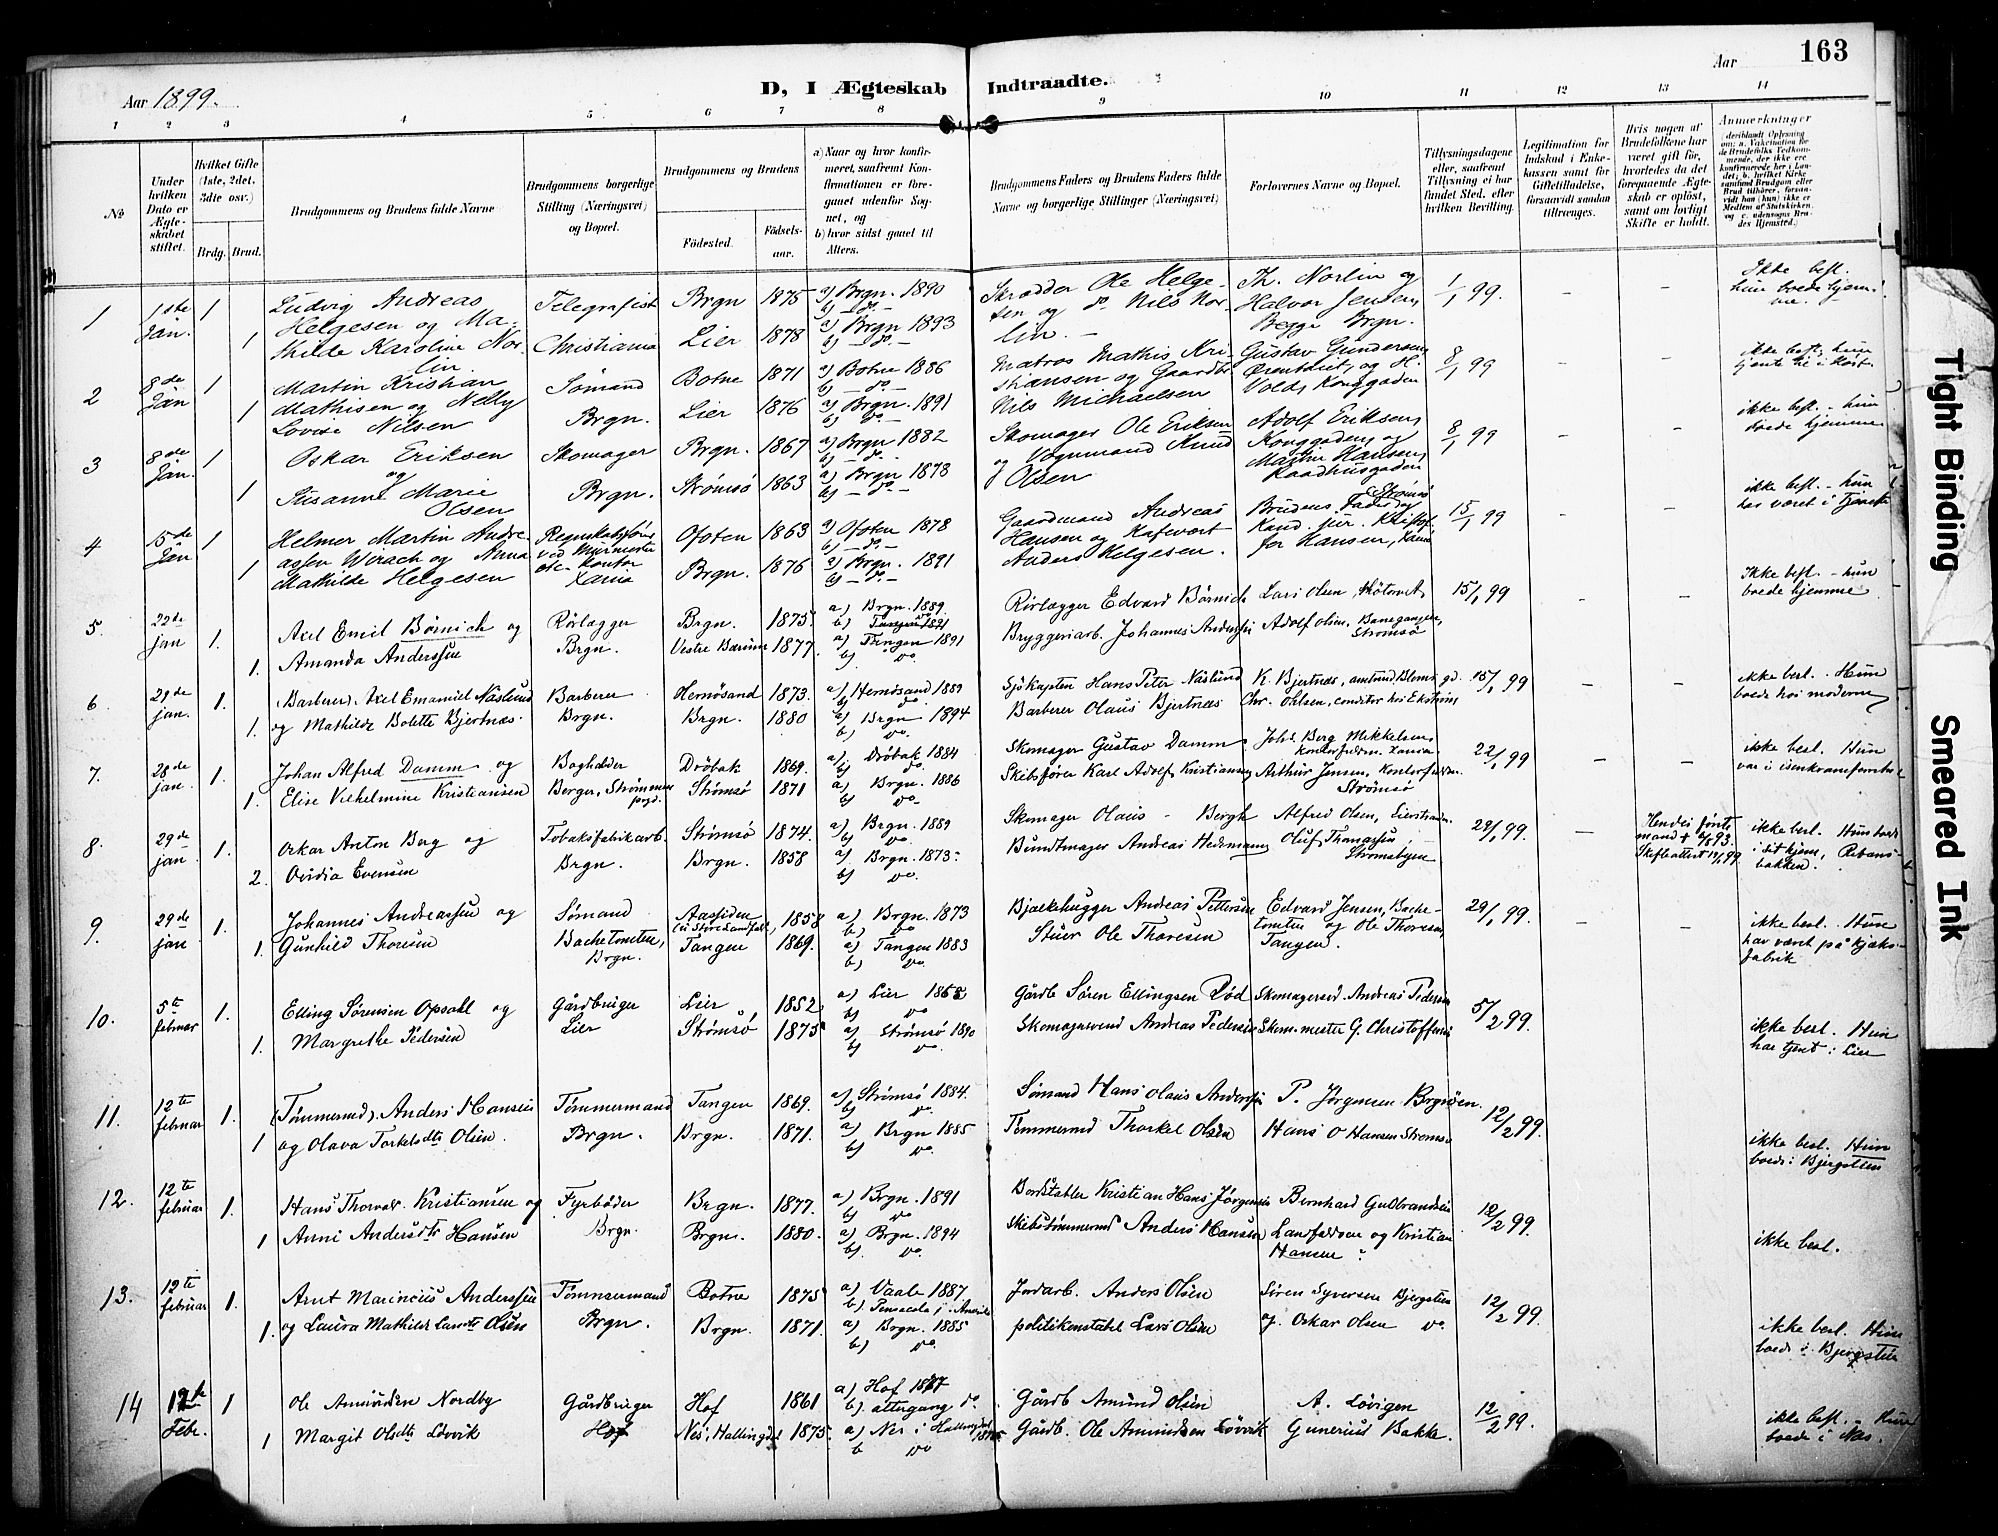 163
Aar 1899.
D, I Ægteskab Indtraadte.
Aar
1 2 3 4 5 6 7 8 9 10 11 12 13 14
No
Under hvilken Dato er Ægteskabet stiftet.
Hvilket Gifte (1ste, 2det, 3dte osv.)
Brdg. Brud.
Brudgommens og Brudens fulde Navne
Brudgommens borgerlige Stilling (Næringsvei) og Bopæl.
Brudgommens og Brudens
Födested.
Födselsaar.
a) Naar og hvor konfirmeret, saafremt Konfirmationen er foregaaet udenfor Sognet, og
b) hvor sidst gaaet til Alters.
Brudgommens Faders og Brudens Faders fulde Navne og borgerlige Stillinger (Næringsvei)
Forlovernes Navne og Bopæl.
Tillysningsdagene eller, saafremt Tillysning ei har fundet Sted, efter hvilken Bevilling.
Legitimation for Indskud i Enkekassen samt for Giftetilladelse, forsaavidt saadan tiltrænges.
Hvis nogen af Brudefolkene har været gift för, hvorledes da det foregaaende Ægteskab er oplöst, samt om lovligt Skifte er holdt.
Anmærkninger
1 1ste Jan. 1 Ludvig Andreas Telegrafist Brgn 1875 a) Brgn. 1890 b) do. Skrædder Ole Helge- Th. Norlin og 1/1 99. – – Ikke besl.
Helgesen og Ma- sen og do. Nils Nor- Halvor Jensen, hun boede hjem-
1 thilde Karoline Nor- Christiania Lier 1878 a) Brgn 1893 b) do. lin. – Begge Brgn. me. –
lin
2 8de Jan 1 Martin Kristian Sömand Botne 1871 a) Botne 1886 b) do. Matros Mathis Kri- Gustav Gundersen 8/1 99 – – ikke besl., hun
1 Mathisen og Nelly Brgn. Lier 1876 a) Brgn. 1891 b) do. stiansen og Gaardbr
Lovise Nilsen Nils Michaelsen Konggaden
3 8de Jan. 1 Oskar Eriksen Skomager Brgn. 1867 a) Brgn 1882 b) do. Skomager Ole Eriksen Adolf Eriksen, 8/1 99 – – ikke besl. – hun
og og Vognmand Knud Konggaden, og boede hjemme
1 Susanne Marie Brgn. Strömsö 1863 a) Brgn 1878 b) do. Olsen Martin Hansen,
Olsen Raadhusgaden
4 15de Jan 1 Helmer Martin Andre- Regnskabsförer Ofoten 1863 a) Ofoten 1878 b) do. Gaardmand Andreas Brudens Fader og 15/1 99 – – ikke besl. – hun
assen Wirach og Anna Hansen og Kafevert Kand. jur. Kristof- har været i Tjeneste
1 Mathilde Helgesen Xania Brgn. 1876 a) Brgn. 1891 b) do. Anders Helgesen. fer Hansen,
5. 22de jan 1. Axel Emil Börnich og Rörlægger Brgn. 1875. a) Brgn. 1889. b) Tangen 1891 Rörlægger Edvard Börnich Lars Olsen, 15/1 99 – – Ikke besl. – hun
1. Amanda Anderssen Brgn. Vestre Bærum 1877. a) Tangen 1891 b) do. Bryggeriarb. Johannes Anderssen Adolf Olsen, Banegangen, Strömsö boede hjemme
6. 29de jan. 1. (Barberer) Axel Emanuel Näslund Barberer Hernösand 1873. a) Hernösand 1889 b) do. Sjökapten Hans Peter Näslund K. Bjertnæs, 15/1 99 – – ikke besl. Hun
1. og Mathilde Bolette Bjertnæs. Brgn. Brgn. 1880 a) Brgn 1894 b) do. Barberer Olaus Bjertnæs Chr. Ohlsen, conditor hos Ekström boede hos moderen
7. 28de jan. 1. Johan Alfred Damm og Bogholder Dröbak 1869. a) Dröbak 1884 b) do. Skomager Gustav Damm Johs. Berg Mikkelsen, 22/1 99 – – ikke besl. Hun
1. Elise Vilhelmine Kristiansen Berger, Strömmen prgd. Strömsö 1871 a) Brgn. 1886 b) do. Skibsförer Karl Adolf Kristiansen Arthur Jensen, Strömsö
8. 29de jan 1. Oskar Anton Berg og Tobaksfabrikarb. Strömsö 1874. a) Brgn. 1889 b) do. Skomager Olaus Bergh Alfred Olsen, Lierstranden 29/1 99. – Hendes förste mand + 6/8 93. Skifteattest ikke besl. Hun boede
2. Ovidia Evensen Brgn. Brgn. 1858 a) Brgn. 1873. b) do. Bundtmager Andreas Hedemann, Oluf Thomassen, Strömsbyen i sit hjem,
9. 29de jan 1. Johannes Andreassen og Sömand Aassiden 1858 a) Brgn. 1873 b) do. Bjælkehugger Andreas Pettersen Edvard Jensen, Bache- 29/1 99. – – ikke besl. Hun
1. Gunhild Thoresen Bachetomten, Brgn. Tangen 1869. a) Tangen 1883 b) do. Stuer Ole Thoresen tomten og Ole Thoresen Tangen. har været på kjæks-
fabrik
10. 5te februar 1. Elling Sörensen Opsahl og Gårdbruger Lier, 1852 a) Lier 1868 b) do. Gårdb Sören Ellingsen Röd Skomagersvd. Andreas Pedersen 5/2 99. ikke besl. Hun
1. Margrethe Pedersen Lier Strömsö 1875 a) Strömsö 1890 b) do. Skomagersvend Andreas Pedersen Skom.mester G. Christoffersen har tjent i Lier
11. 12te februar 1. (Tömmermd). Anders Hansen Tömmermand Tangen 1869. a) Strömsö 1884. b) do. Sömand Hans Olaus Anderssen P. Jörgensen Brgnöen. 12/2 99.
1 og Olava Torkelsdtr Olsen. Brgn. Brgn. 1871. a) Brgn 1885 b) do. Temmermd Thorkel Olsen Hans O Hansen Strömsö ikke besl. Hun
boede i Bjergstien
12. 12te februar 1. Hans Thorvar Kristiansen og Fyrböder Brgn. 1877. a) Brgn. 1891 b) do Bordstabler Kristian Hans Jörgensen Bernhard Gulbrandsen 12/2 99.
1 Anni Andersdtr Hansen Brgn Brgn. 1880. a) Brgn. 1894 b) do. Skibstömmermd Anders Hansen Landfaldöen og Kristian Hansen ikke besl.
13. 12te februar 1. Arnt Marincius Anderssen Tömmermand Botne 1875 a) Vaale 1887. b) Pensacola i Amerika Jordarb. Anders Olsen Sören Syversen Bjergstien 12/2 99.
1. og Laura Mathilde Larsdtr Olsen Brgn. Brgn. 1871. a) Brgn. 1885 b) do. politikonstabl Lars Olsen og Oskar Olsen do. ikke besl. Hun
boede i Bjergstien
14 12te Febr. 1 Ole Amundsen Nordby Gårdbruger Hof 1861 a) Hof 1877 b) altergang do. Gårdb Amund Olsen A. Lövigen 12/2 99.
1 Margit Olsdtr Lövvik Hof Nes, Hallingdal 1875. a) Nes i Hallingdal b do Gårdb. Ole Amundsen Lövvik Gunerius Bakke. ikke besl. – Hun
boede i Næs.
Tight Binding
Smeared Ink